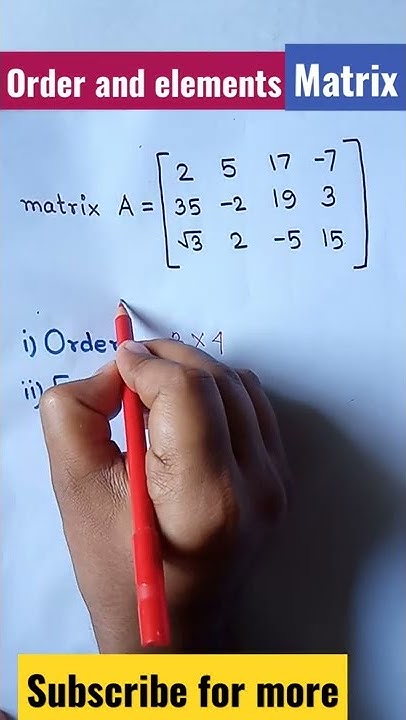 Order and elements Matrix
matrix A = [2 5 17 -7
35 -2 19 3
√3 2 -5 15]
i) Order × 4
ii)
Subscribe for more